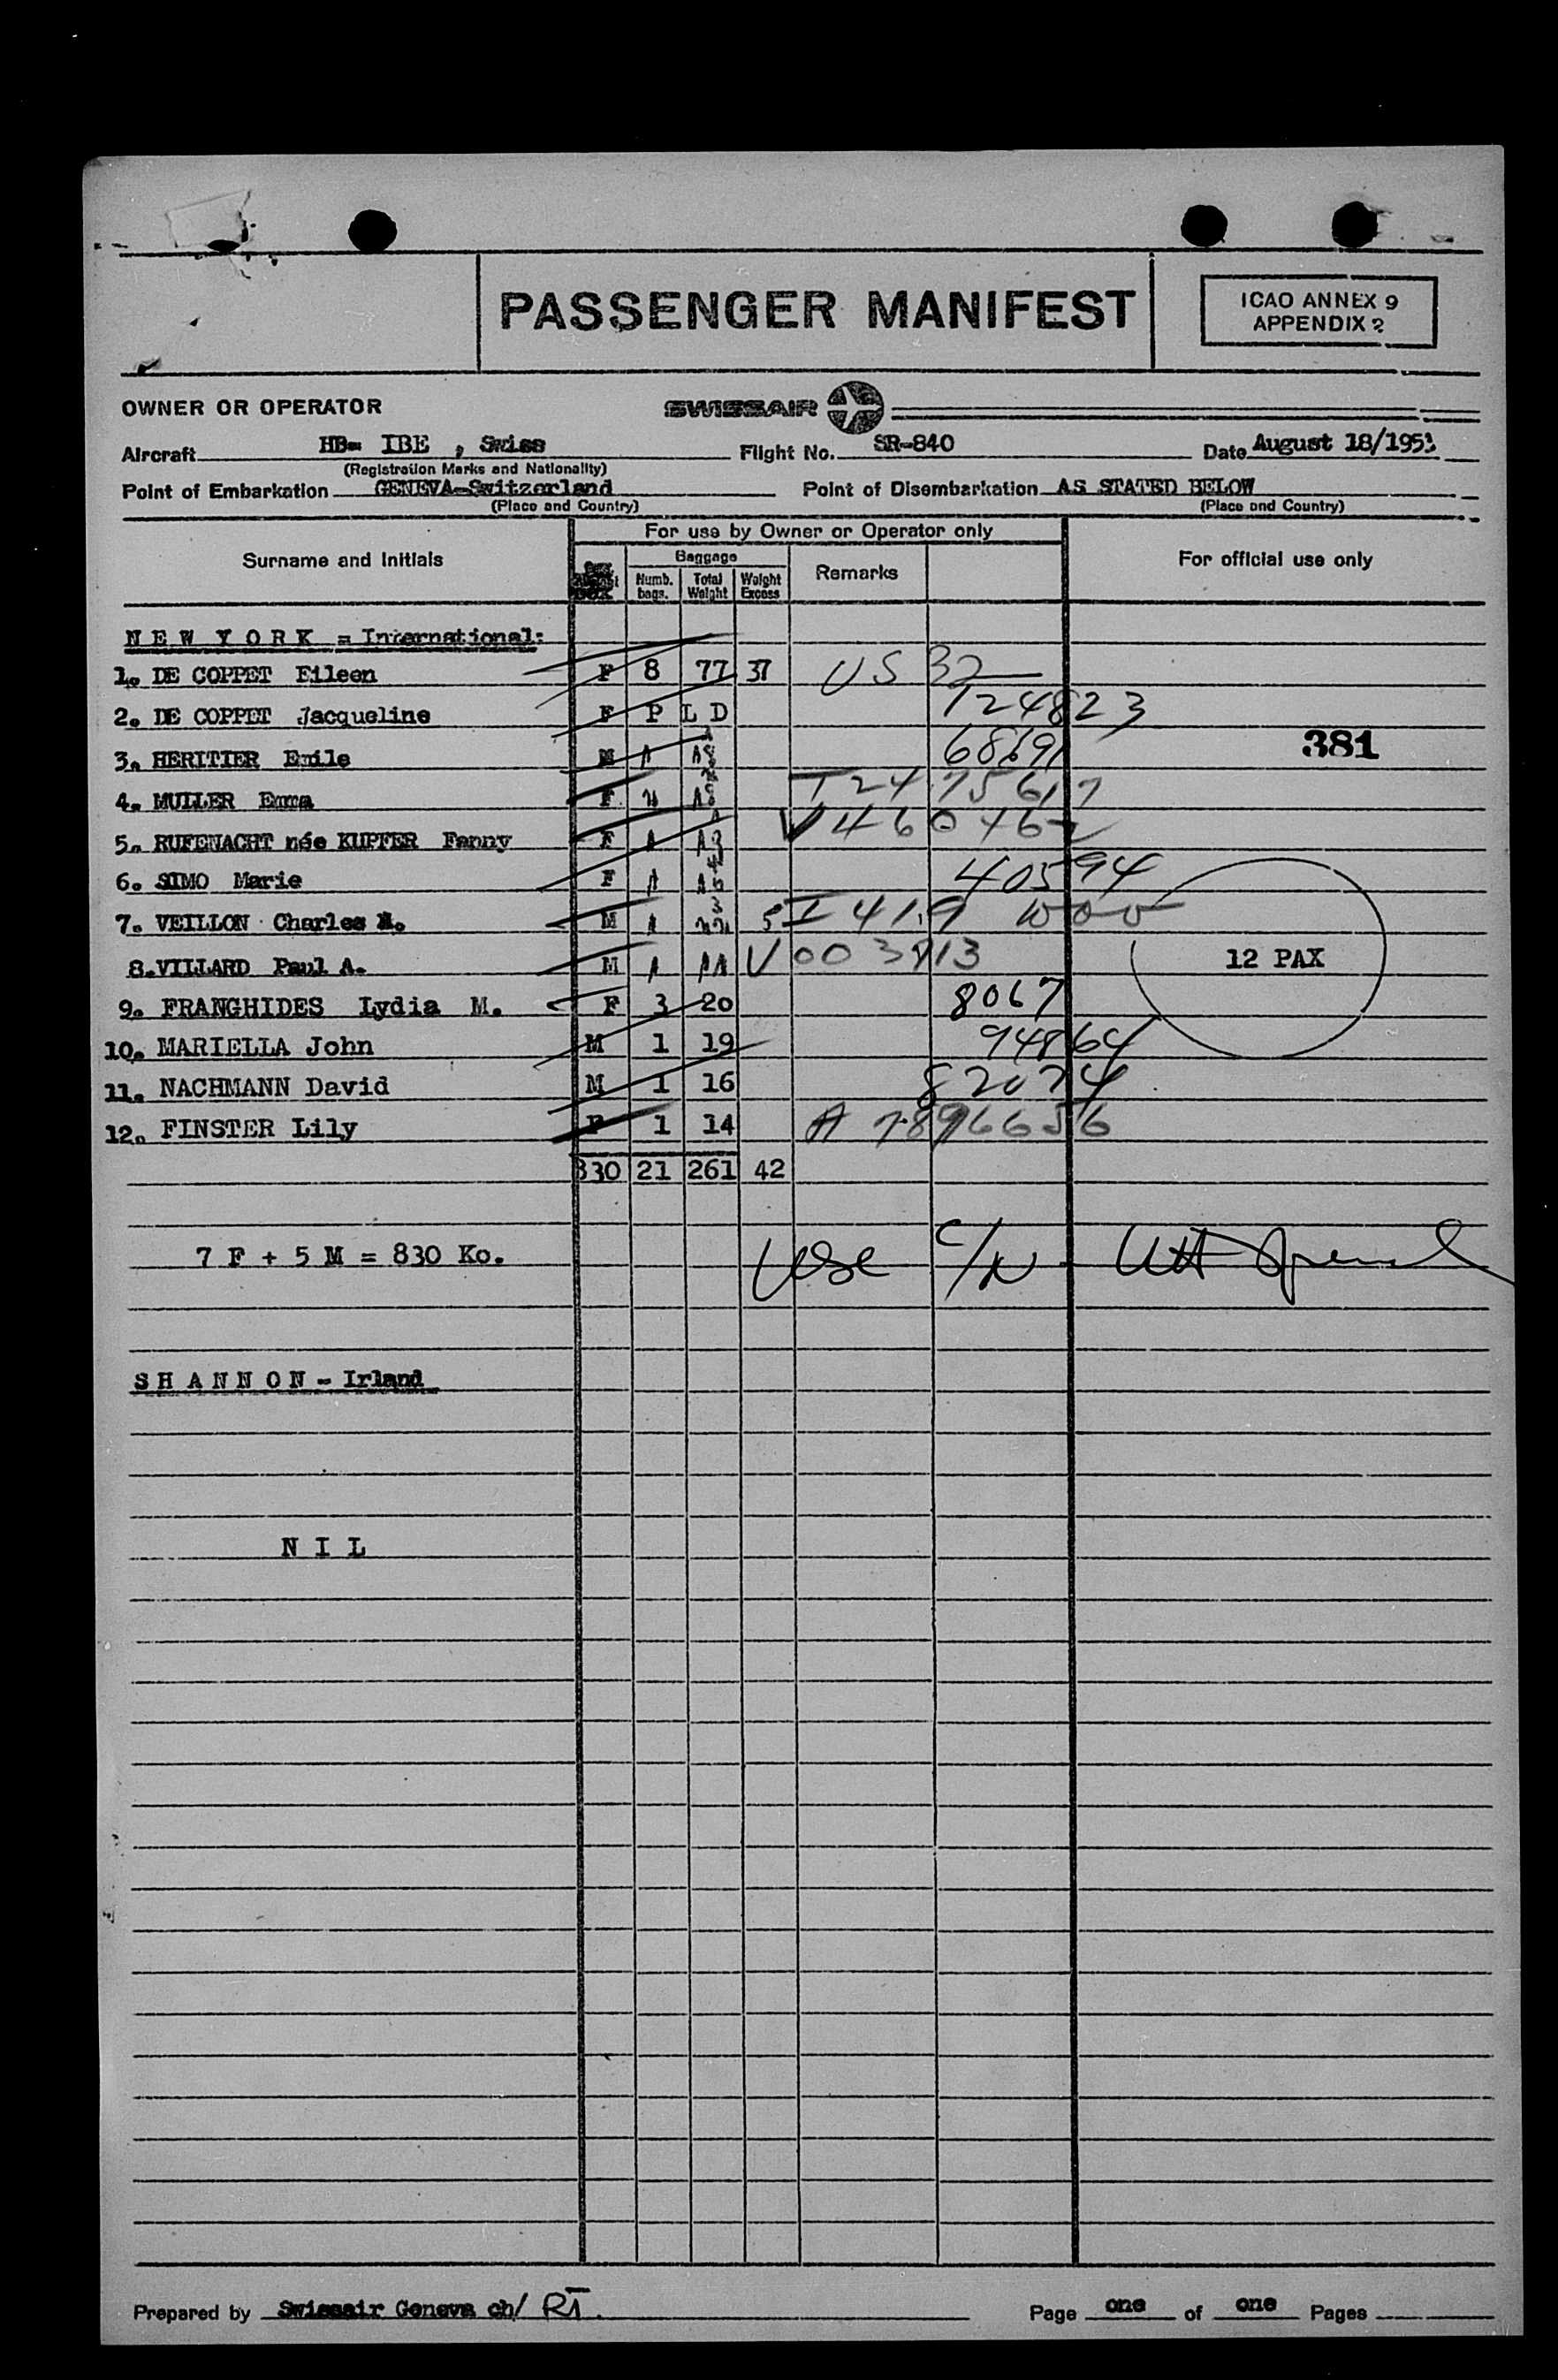 PASSENGER MANIFEST
ICAO ANNEX 9
APPENDIX 2
OWNER OR OPERATOR
SWISSAIR
Aircraft HB- IBE , Swiss Flight No. SR-840 Date August 18/1953
(Registration Marks and Nationality)
Point of Embarkation GENEVA-Switzerland Point of Disembarkation AS STATED BELOW
(Place and Country) (Place and Country)
For use by Owner or Operator only
Surname and Initials Baggage Remarks For official use only
Numb. bags. Total Weight Weight Excess
N E W Y O R K = International:
1. DE COPPET Eileen F 8 77 37 US 32
2. DE COPPET Jacqueline F P L D 124823
3. HERITIER Emile M 381
4. MULLER Emma F
5. RUFENACHT née KUPFER Fanny F
6. SIMO Marie F 40594
7. VEILLON Charles M. M 5
8. VILLARD Paul A. M
12 PAX
9. FRANGHIDES Lydia M. F 3 20 8067
10. MARIELLA John M 1 19 94864
11. NACHMANN David M 1 16 82074
12. FINSTER Lily F 1 14 A 7896656
830 21 261 42
7 F + 5 M = 830 Ko.
Use C/N
S H A N N O N - Irland
N I L
Prepared by Swissair Geneva ch/ Page one of one Pages